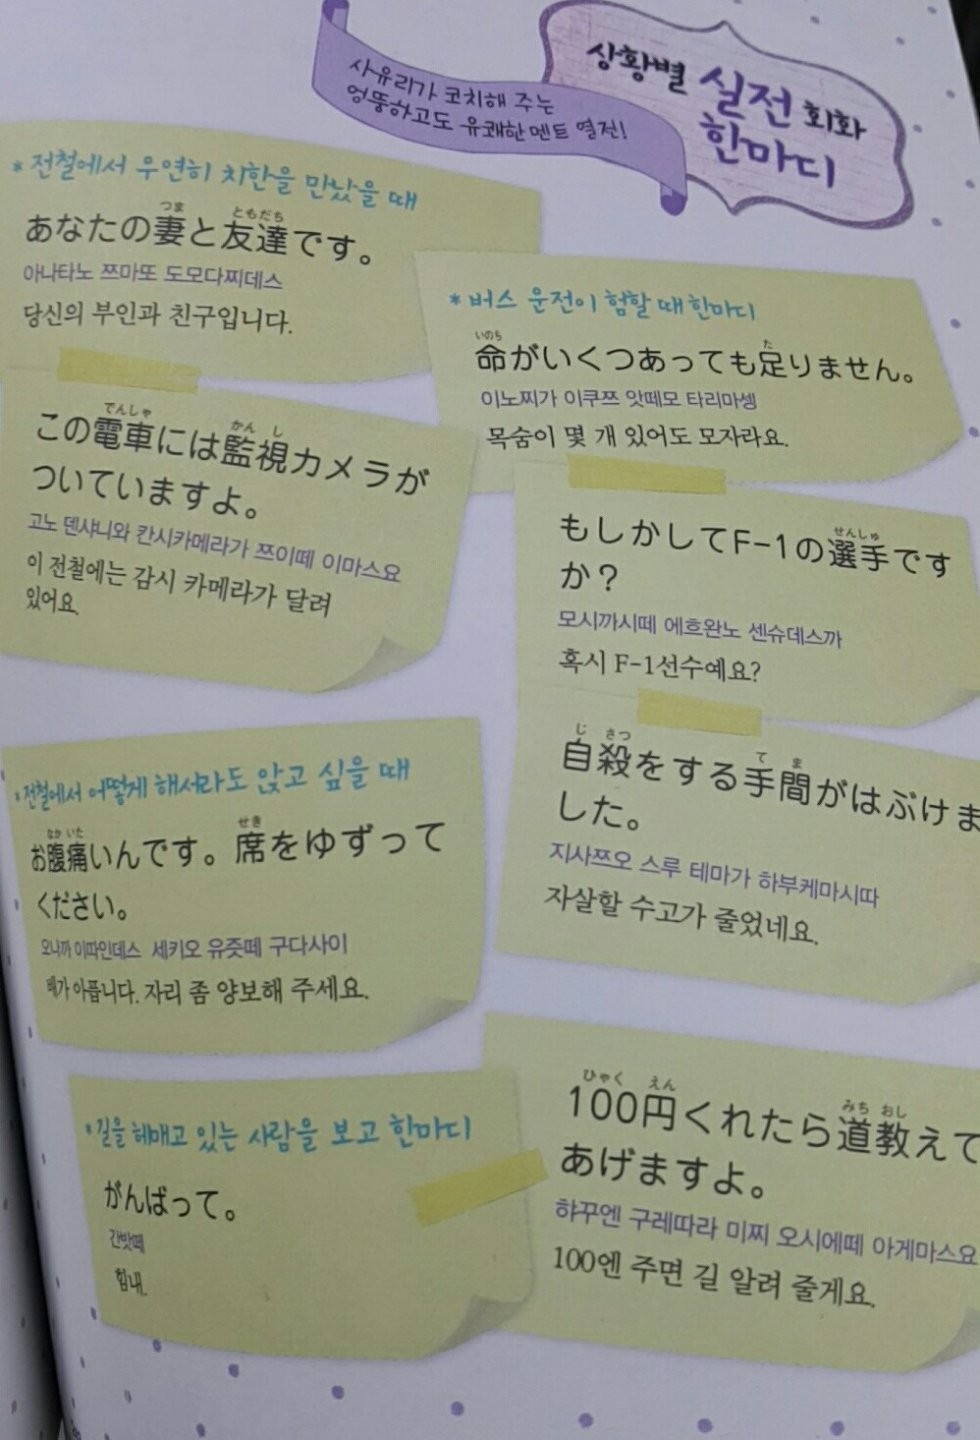 상황별 실전 회화
한마디
사유리가 코치해 주는
엉뚱하고도 유쾌한 멘트 열전!
* 전철에서 우연히 치한을 만났을 때
つま ともだち
あなたの妻と友達です。
아나타노 쯔마또 도모다찌데스
당신의 부인과 친구입니다.
でんしゃ かん し
この電車には監視カメラが
ついていますよ。
고노 덴샤니와 칸시카메라가 쯔이떼 이마스요
이 전철에는 감시 카메라가 달려
있어요.
* 버스 운전이 험할 때 한마디
いのち た
命がいくつあっても足りません。
이노찌가 이쿠쯔 앗떼모 타리마셍
목숨이 몇 개 있어도 모자라요.
せんしゅ
もしかしてF-1の選手です
か？
모시까시떼 에흐완노 센슈데스까
혹시 F-1선수예요?
じ さつ て ま
自殺をする手間がはぶけま
した。
지사쯔오 스루 테마가 하부케마시따
자살할 수고가 줄었네요.
* 전철에서 어떻게 해서라도 앉고 싶을 때
なか いた せき
お腹痛いんです。席をゆずって
ください。
오나까 이따인데스 세키오 유즛떼 구다사이
배가 아픕니다. 자리 좀 양보해 주세요.
* 길을 헤매고 있는 사람을 보고 한마디
がんばって。
간밧떼
힘내.
ひゃく えん みち おし
100円くれたら道教えて
あげますよ。
햐꾸엔 구레따라 미찌 오시에떼 아게마스요
100엔 주면 길 알려 줄게요.